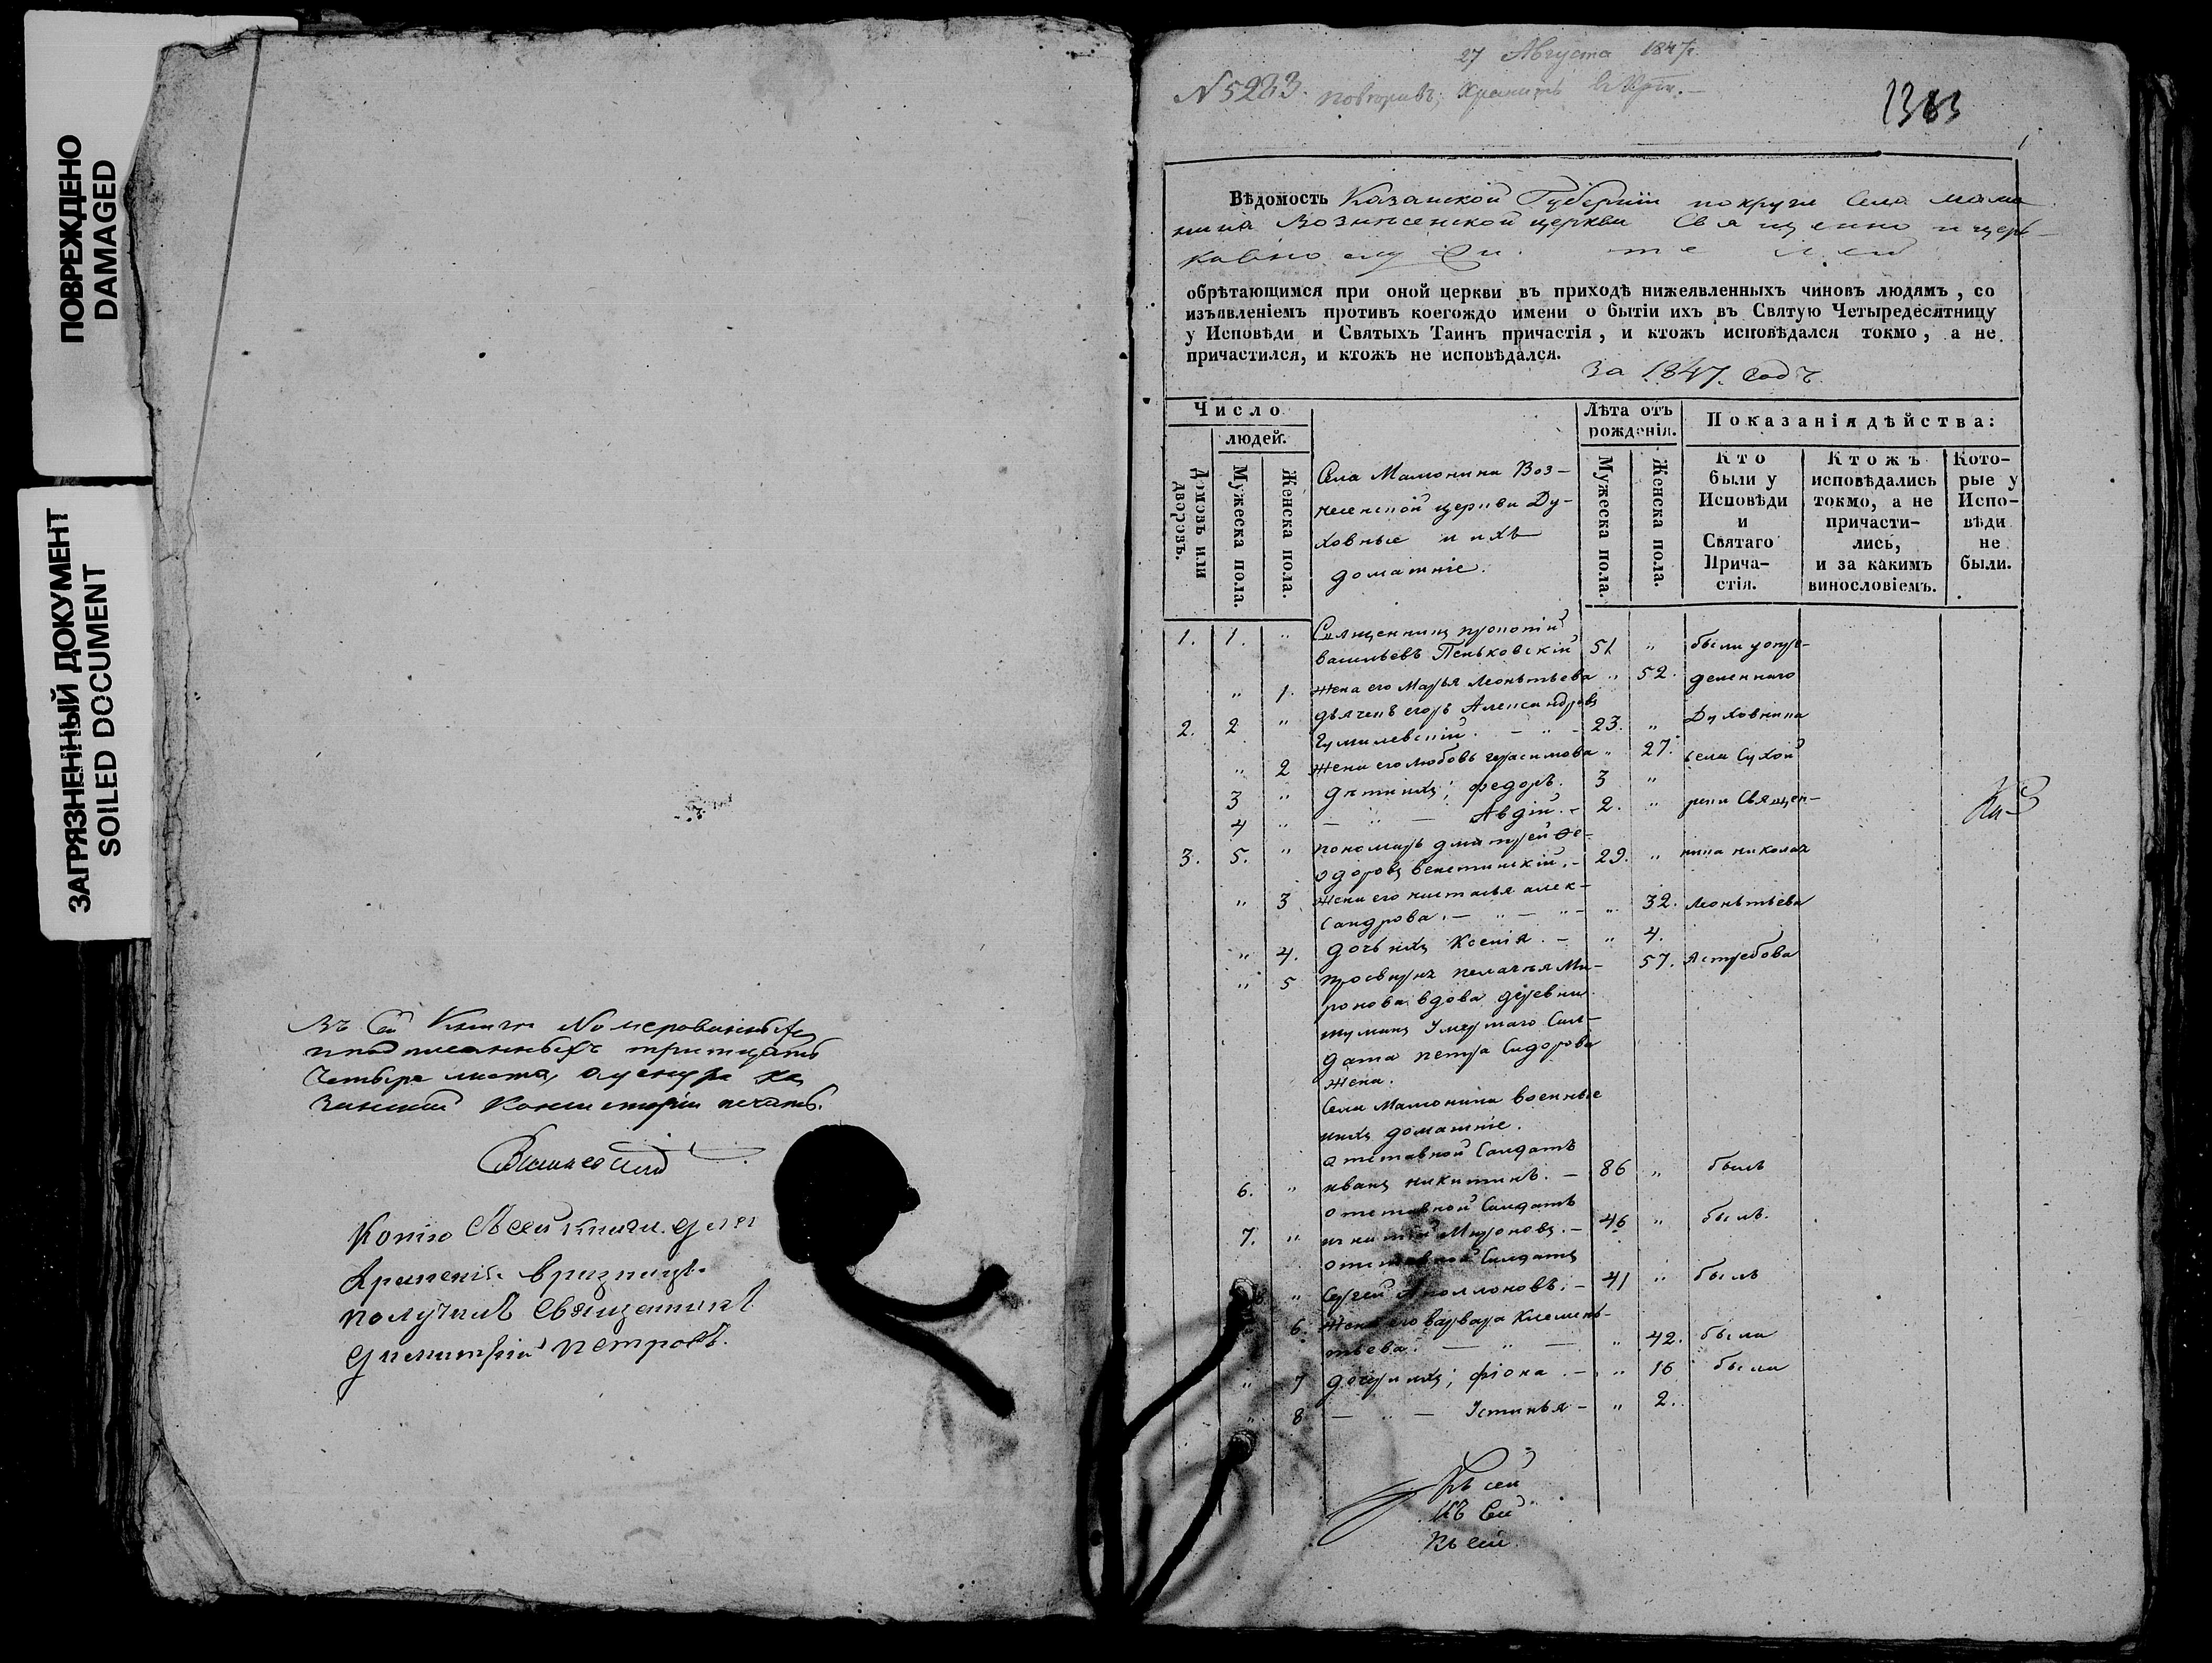 ПОВРЕЖДЕНО
DAMAGED
ЗАГРЯЗНЕННЫЙ ДОКУМЕНТ
SOILED DOCUMENT
Въ Сей Книге Номерованныхъ
и подписанныхъ тритцать
Четыре листа,
Консисторіи печать.
Копію Съ сей книги для
Храненія в ризнице
получилъ Священникъ
Димитрій Петровъ.
27 Августа 1847г.
N 5223.
1383
Вѣдомость Казанской Губерніи по округе Села Мамо
нина Вознесенской церкви Священно и цер-
ковно служителей
обрѣтающимся при оной церкви въ приходѣ нижеявленныхъ чиновъ людямъ, со
изъявленіемъ противъ коегождо имени о бытіи ихъ въ Святую Четыредесятницу
у Исповѣди и Святыхъ Таинъ причастія, и ктожъ исповѣдался токмо, а не
причастился, и ктожъ не исповѣдался.
За 1847. Годъ
Число
людей.
Домовъ или дворовъ.
Мужеска пола.
Женска пола.
Села Мамонина Воз-
несенской церкви Ду-
ховные и ихъ
домашніе.
Лѣта отъ
рожденія.
Мужеска пола.
Женска пола.
Показанія дѣйства:
Кто
были у
Исповѣди
и
Святаго
Прича-
стія.
Ктожъ
исповѣдались
токмо, а не
причасти-
лись,
и за какимъ
винословіемъ.
Кото-
рые у
Испо-
вѣди
не
были.
1. 1. " Священникъ
васильевъ Пеньковскій 51 " были у опре-
" 1. Жена его Марья Леонтьева " 52. деленнаго
2. 2 " дьячекъ егоръ Александровъ
Гумилевскій. - " - 23. " Духовника
" 2 Жена его Любовь герасимова " 27. села Сухой
3 " дети ихъ; федоръ. 3 "
4 " — " — Авдій. - 2. " реки Священ-
3. 5. " пономарь дмитрей Фе-
одоровъ 29. " ника николая
" 3 Жена его наталья алек-
сандрова. — " — " - " 32. Леонтьева
" 4. дочь ихъ Ксенія. - " 4.
" 5 просвирня пелагея Ми- 57. Ястребова
ронова вдова деревни
умершаго Сал-
дата петра Сидорова
жена.
Села Мамонина военные
и ихъ домашніе.
отставной Салдатъ
6. " иванъ никитинъ. — 86 " былъ
отставной Салдатъ
7. " Мироновъ. — 46 " былъ.
отставной Салдатъ
8. " Сергей Аполлоновъ. - 41 " былъ
6. Жена его варвара Клемень-
тьева. — " — " 42. была
" 7 дочери ихъ; фіона. - " 16 была
" 8 — " — Устинья - " 2.
Къ сей
Къ Сей
Къ сей